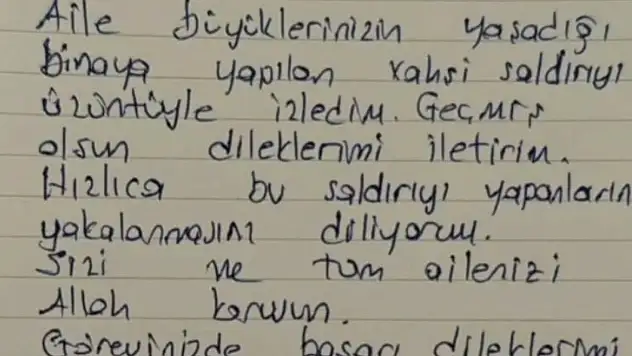 Aile büyüklerinizin yaşadığı
binaya yapılan vahşi saldırıyı
üzüntüyle izledim. Geçmiş
olsun dileklerimi iletirim.
Hızlıca bu saldırıyı yapanların
yakalanmasını diliyorum.
Sizi ve tüm ailenizi
Allah korusun.
Görevinizde başarı dileklerimi